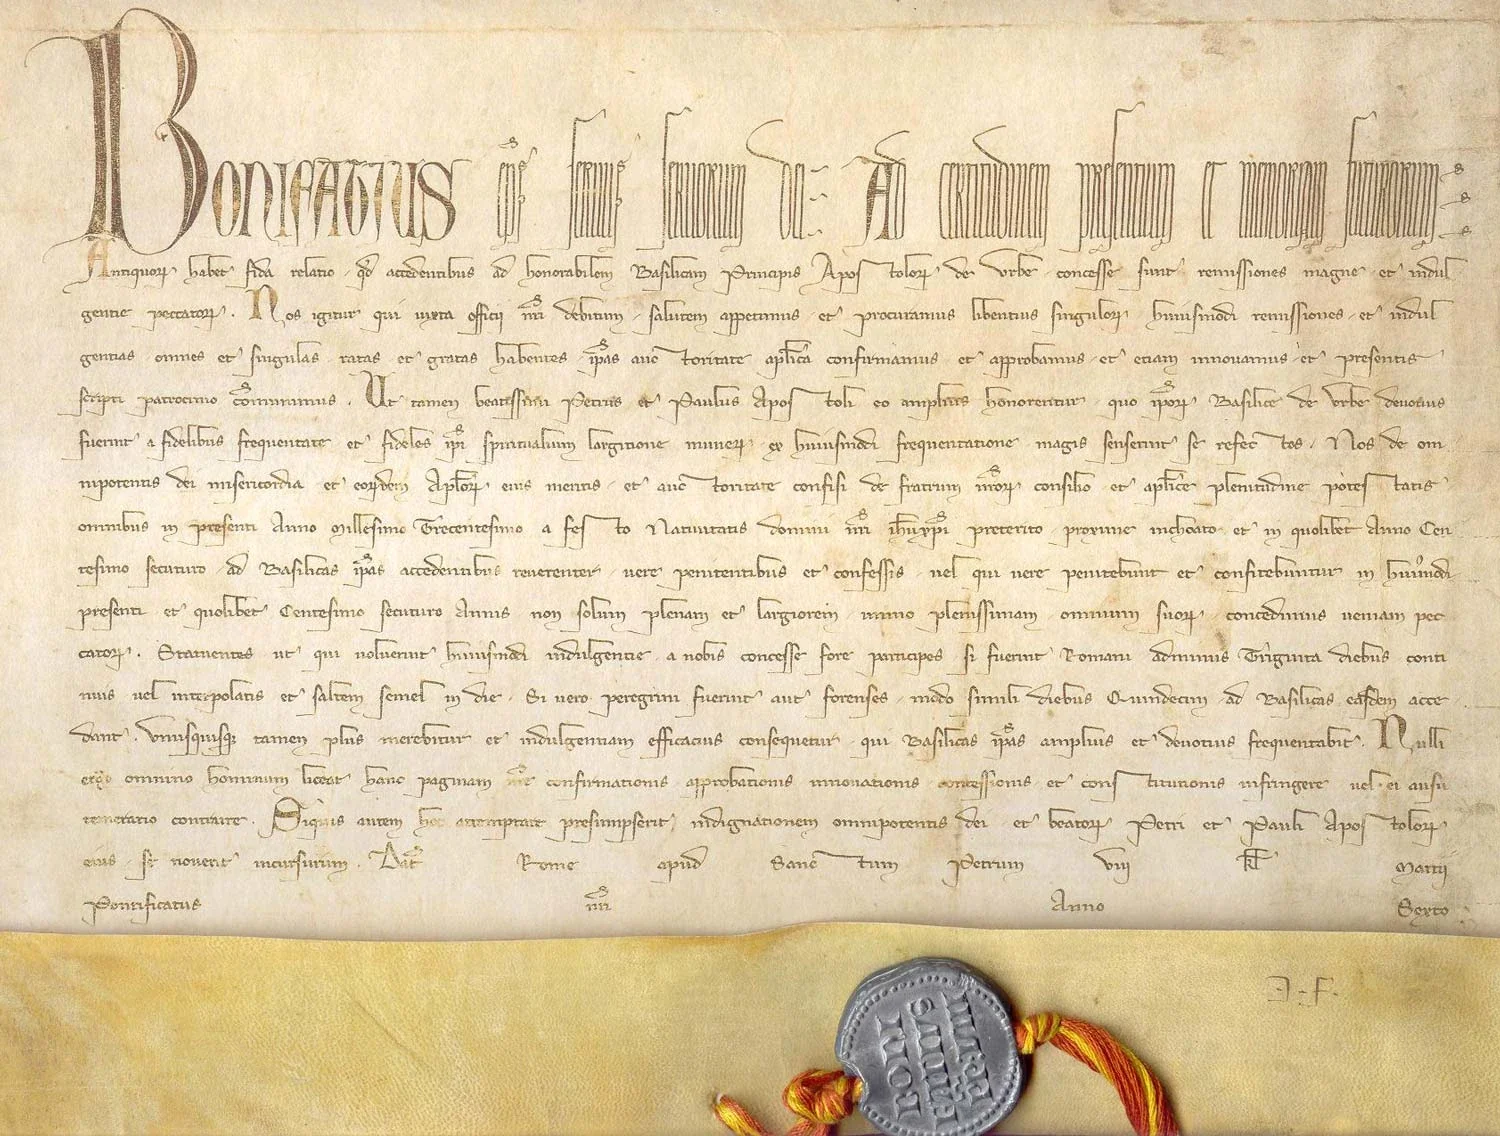 Bonifatius eps servus servorum dei Ad certitudinem presentium et memoriam futurorum
Antiquorum habet fida relatio qd accedentibus ad honorabilem Basilicam Principis Apostolorum de Urbe concesse sunt remissiones magne et indul
gentie peccatorum. Nos igitur qui iuxta officii nri debitum salutem appetimus et procuramus libentius singulorum huiusmodi remissiones et indul
gentias omnes et singulas ratas et gratas habentes ipsas auctoritate aplica confirmamus et approbamus et etiam innovamus et presentis
scripti patrocinio comunimus. Ut tamen beatissimi Petrus et Paulus Apostoli eo amplius honorentur quo ipsorum Basilice de Urbe devotius
fuerint a fidelibus frequentate et fideles ipsi spiritualium largitione munerum ex huiusmodi frequentatione magis senserint se refectos. Nos de om
nipotentis dei misericordia et eorumdem Aplorum eius meritis et auctoritate confisi de fratrum nrorum consilio et aplice plenitudine potestatis
omnibus in presenti Anno Millesimo Trecentesimo a festo Nativitatis domini nri ihu xpi preterito proxime inchoato et in quolibet Anno Cen
tesimo secuturo ad Basilicas ipsas accedentibus reverenter vere penitentibus et confessis vel qui vere penitebunt et confitebuntur in huiusmodi
presenti et quolibet Centesimo secuturo Annis non solum plenam et largiorem immo plenissimam omnium suorum concedimus veniam pec
catorum. Statuentes ut qui voluerint huiusmodi indulgentie a nobis concesse fore participes si fuerint Romani adminus Triginta diebus conti
nuis vel interpolatis et saltem semel in die Si vero peregrini fuerint aut forenses modo simili diebus Quindecim ad Basilicas easdem acce
dant. Unusquisque tamen plus merebitur et indulgentiam efficacius consequetur qui Basilicas ipsas amplius et devotius frequentabit. Nulli
ergo omnino hominum liceat hanc paginam nre confirmationis approbationis innovationis concessionis et constitutionis infringere vel ei ausu
temerario contraire. Siquis autem hoc attemptare presumpserit indignationem omnipotentis dei et beatorum Petri et Pauli Apostolorum
eius se noverit incursurum. Dat Rome apud Sanctum Petrum viii kl Martii
Pontificatus nri Anno Sexto